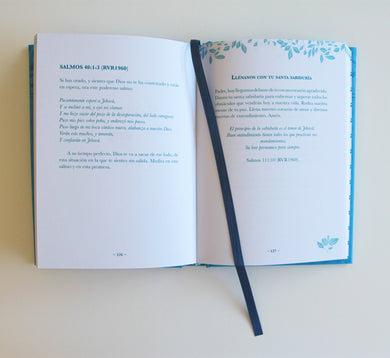 SALMOS 40:1-3 (RVR1960)
Si has orado, y sientes que Dios no te ha contestado y estás
en espera, ora este poderoso salmo:
Pacientemente esperé a Jehová,
Y se inclinó a mí, y oyó mi clamor.
Y me hizo sacar del pozo de la desesperación, del lodo cenagoso;
Puso mis pies sobre peña, y enderezó mis pasos.
Puso luego en mi boca cántico nuevo, alabanza a nuestro Dios.
Verán esto muchos, y temerán,
Y confiarán en Jehová.
A su tiempo perfecto, Dios te va a sacar de ese lodo, de
esa situación en la que te sientes sin salida. Medita en este
salmo y en esta promesa.
~ 126 ~
LLÉNANOS CON TU SANTA SABIDURÍA
Padre, hoy llegamos delante de tu con un corazón agradecido.
Danos tu santa sabiduría para enfrentar y superar todos los
obstáculos que vendrán hoy a nuestra vida. Rodea nuestro
hogar de tu paz. Llena nuestro corazón de amor y abre
nuestro entendimiento. Amén.
El principio de la sabiduría es el temor de Jehová;
Buen entendimiento tienen todos los que practican sus
mandamientos;
Su loor permanece para siempre.
Salmos 111:10 (RVR1960)
~ 127 ~